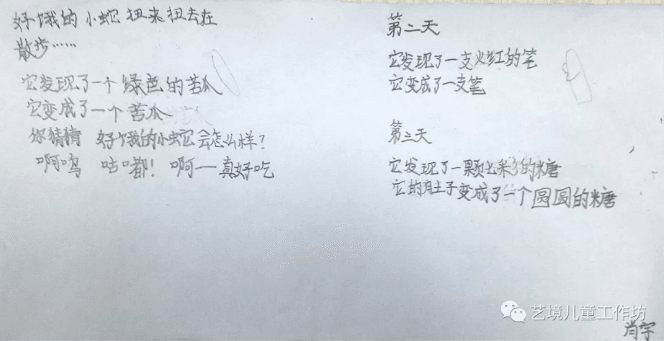 好饿的小蛇扭来扭去在
散步……
它发现了一个绿色的苦瓜
它变成了一个苦瓜
你猜猜 好饿的小蛇会怎么样?
啊呜 咕嘟! 啊一真好吃
第二天
它发现了一支火红的笔
它变成了一支笔
第三天
它发现了一颗七彩的糖
它的肚子变成了一个圆圆的糖
艺境儿童工作坊
肖宇